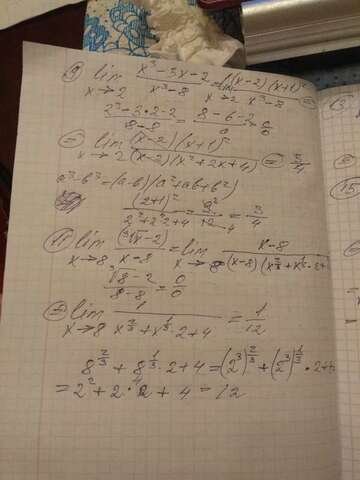 9) lim x→2 (x³-3x-2)/(x³-8) = lim x→2 ((x-2)(x+1)²)/(x³-8) =
(2³-3·2-2)/(8-8) = (8-6-2)/0 = 0/0
= lim x→2 ((x-2)(x+1)²)/((x-2)(x²+2x+4)) = 3/4
a³-b³=(a-b)(a²+ab+b²)
(2+1)²/(2²+2·2+4) = 9/12 = 3/4
11) lim x→8 (∛x-2)/(x-8) = lim x→8 (x-8)/((x-8)(x^(2/3)+x^(1/3)·2+
(∛8-2)/(8-8) = 0/0
= lim x→8 1/(x^(2/3)+x^(1/3)·2+4) = 1/12
8^(2/3)+8^(1/3)·2+4=(2³)^(2/3)+(2³)^(1/3)·2+4
=2²+2·2+4=12
13)
15)